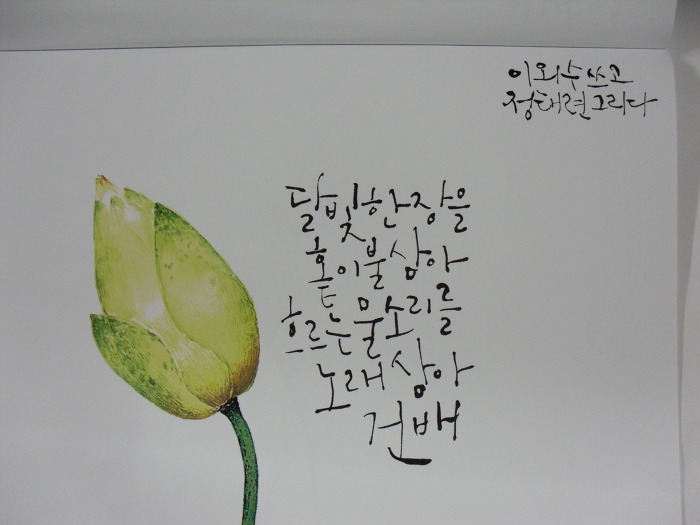 이외수 쓰고
정태련 그리다
달빛 한 장을
홑이불 삼아
흐르는 물소리를
노래 삼아
건배